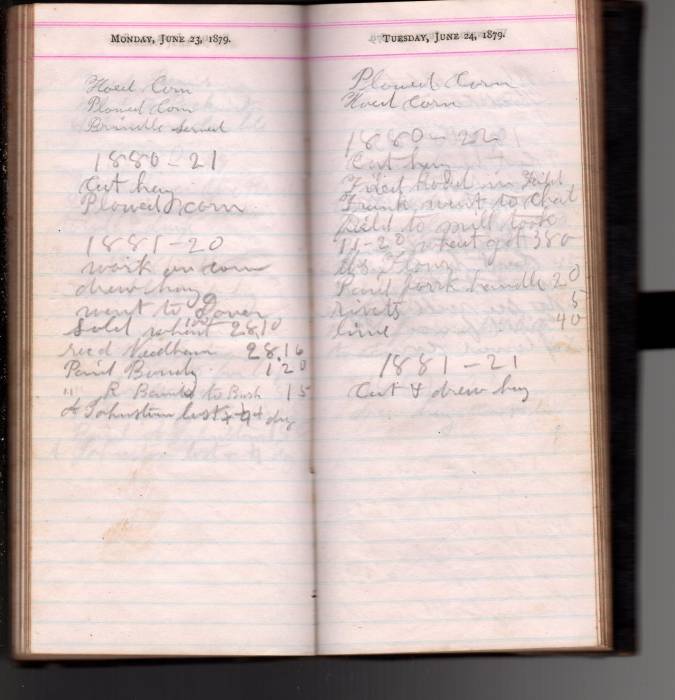 MONDAY, JUNE 23, 1879.
Hoed Corn
Plowed Corn
Served
1880-21
Cut hay
Plowed corn
1881-20
work in corn
drew hay
went to Dover
Sold wheat 28,10
rec'd Needham 28,16
Paid Bundy 1 20
" R to Bush 15
Johnston lost dog
TUESDAY, JUNE 24, 1879.
Plowed Corn
Hoed Corn
1880-22
Cut hay
in
Frank went to
field to mill took
11-20 wheat got 380
lbs Flour
Paid fork handle 20
rivets 5
lime 40
1881-21
Cut & drew hay